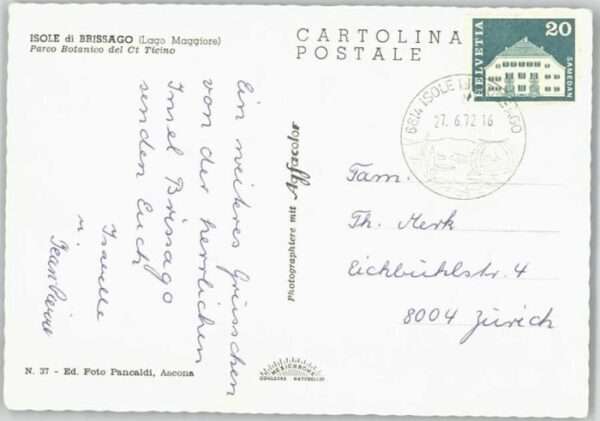 ISOLE di BRISSAGO (Lago Maggiore)
Parco Botanico del Ct Ticino
CARTOLINA
POSTALE
HELVETIA
20
SAMEDAN
6614 ISOLE DI BRISSAGO
27.6.72 16
Ein weiteres Grüsschen
von der herrlichen
Insel Brissago
senden Euch
Isabelle
u.
Jean Pierre
Photographiere mit Agfacolor
Fam.
Th. Merk
Eichbühlstr. 4
8004 Zürich
N. 37 - Ed. Foto Pancaldi, Ascona
MEXICHROME
COULEURS NATURELLES